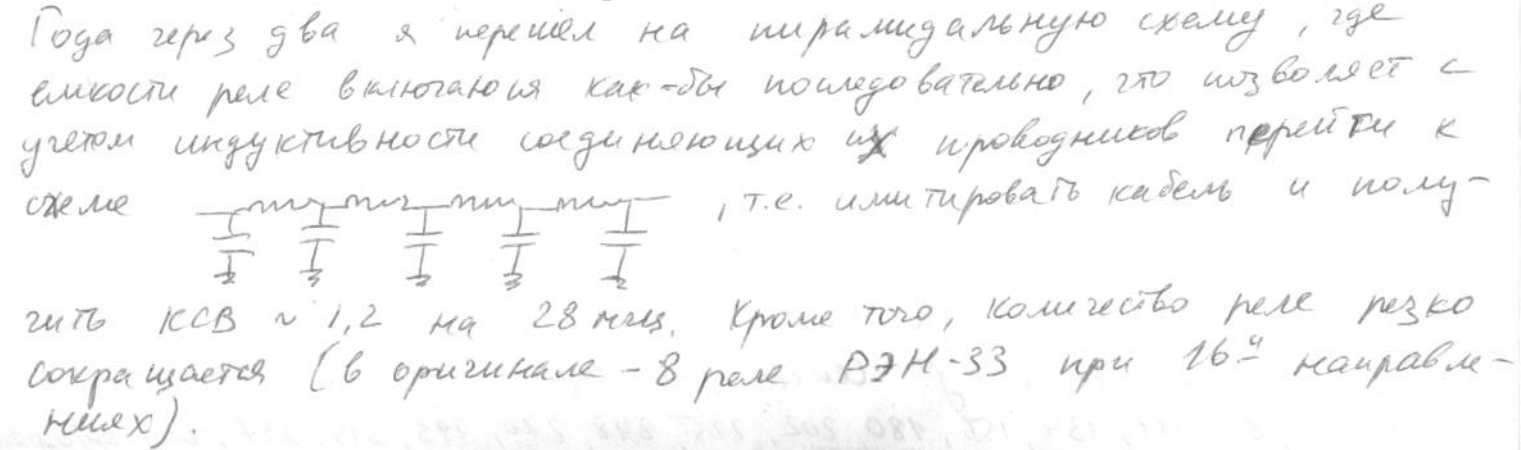 Года через два я перешёл на пирамидальную схему, где
емкости реле включаются как-бы последовательно, что позволяет с
учетом индуктивности соединяющих их проводников перейти к
схеме , т.е. имитировать кабель и полу-
чить КСВ ~ 1,2 на 28 мгц. Кроме того, количество реле резко
сокращается (в оригинале - 8 реле РЭН-33 при 16и направле-
ниях).